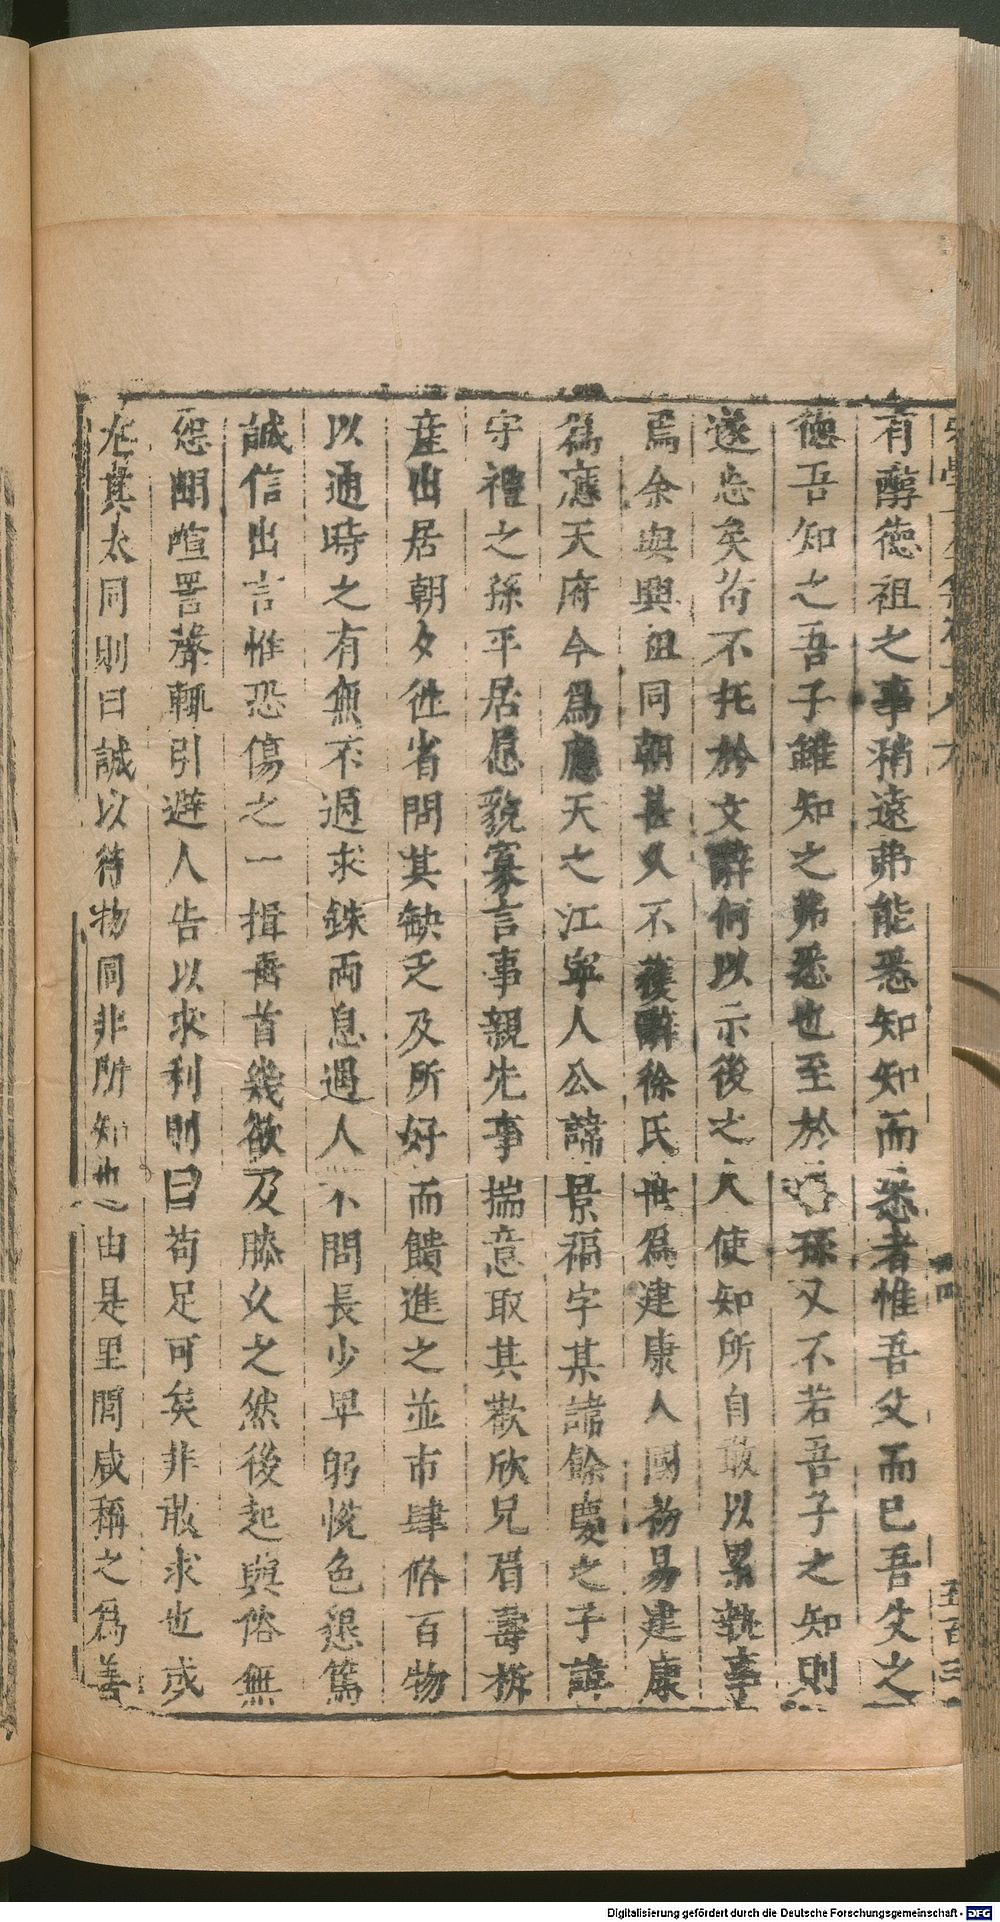 有醇德祖之事稍遠弗能悉知知而悉者惟吾父而已吾父之
德吾知之吾子雖知之弗悉也至於孫又不若吾子之知則
遂忘矣苟不托於文辭何以示後之人使知所自敢以累執事
焉余與興祖同朝甚久不獲辭徐氏世爲建康人國初易建康
爲應天府今爲應天之江寜人公諱景福字某諸餘慶之子諱
守禮之孫平居愿貌寡言事親先事揣意取其歡欣兄眉壽析
産出居朝夕徃省問其缺乏及所好而饋進之並市肆偹百物
以通時之有無不過求銖兩息遇人不問長少卑躬恱色懇篤
誠信出言惟恐傷之一揖垂首幾欲及膝乆之然後起與俗無
怨鬭喧詈聲輒引避人告以求利則曰苟足可矣非敢求也或
尤其太同則曰誠以待物同非所知也由是里閭咸稱之爲善
五百三
Digitalisierung gefördert durch die Deutsche Forschungsgemeinschaft - DFG